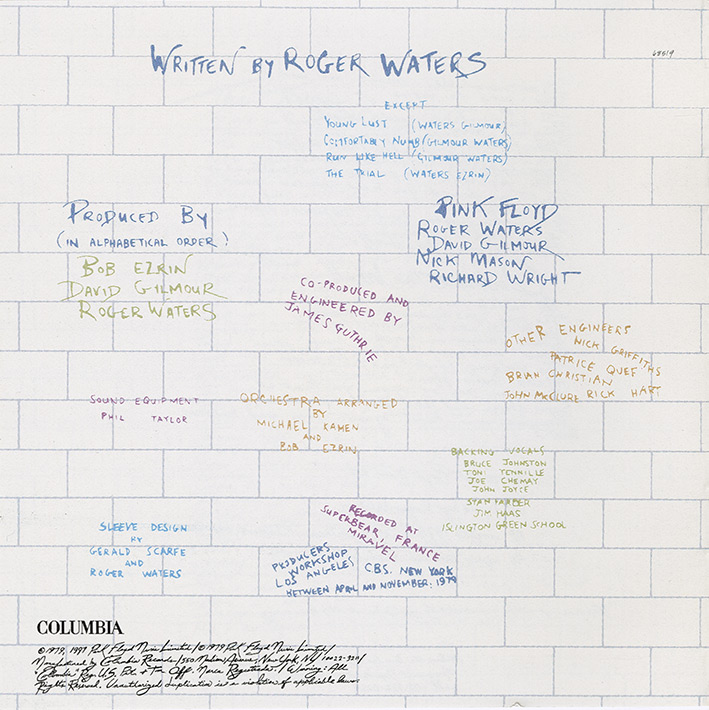 WRITTEN BY ROGER WATERS
68519
EXCEPT
YOUNG LUST (WATERS GILMOUR)
COMFORTABLY NUMB (GILMOUR WATERS)
RUN LIKE HELL (GILMOUR WATERS)
THE TRIAL (WATERS EZRIN)
PRODUCED BY
(IN ALPHABETICAL ORDER)
BOB EZRIN
DAVID GILMOUR
ROGER WATERS
PINK FLOYD
ROGER WATERS
DAVID GILMOUR
NICK MASON
RICHARD WRIGHT
CO-PRODUCED AND
ENGINEERED BY
JAMES GUTHRIE
OTHER ENGINEERS
NICK GRIFFITHS
PATRICE QUEF
BRIAN CHRISTIAN
JOHN McCLURE RICK HART
SOUND EQUIPMENT
PHIL TAYLOR
ORCHESTRA ARRANGED
BY
MICHAEL KAMEN
AND
BOB EZRIN
BACKING VOCALS
BRUCE JOHNSTON
TONI TENNILLE
JOE CHEMAY
JOHN JOYCE
STAN FARBER
JIM HAAS
ISLINGTON GREEN SCHOOL
SLEEVE DESIGN
BY
GERALD SCARFE
AND
ROGER WATERS
RECORDED AT
SUPERBEAR, FRANCE
MIRAVEL
PRODUCERS
WORKSHOP
LOS ANGELES CBS. NEW YORK
BETWEEN APRIL AND NOVEMBER. 1979
COLUMBIA
© 1979, 1997 Pink Floyd Music Limited/℗ 1979 Pink Floyd Music Limited/
Manufactured by Columbia Records/550 Madison Avenue, New York, NY 10022-3211/
"Columbia" Reg. U.S. Pat. & Tm. Off. Marca Registrada./Warning: All
Rights Reserved. Unauthorized duplication is a violation of applicable laws.